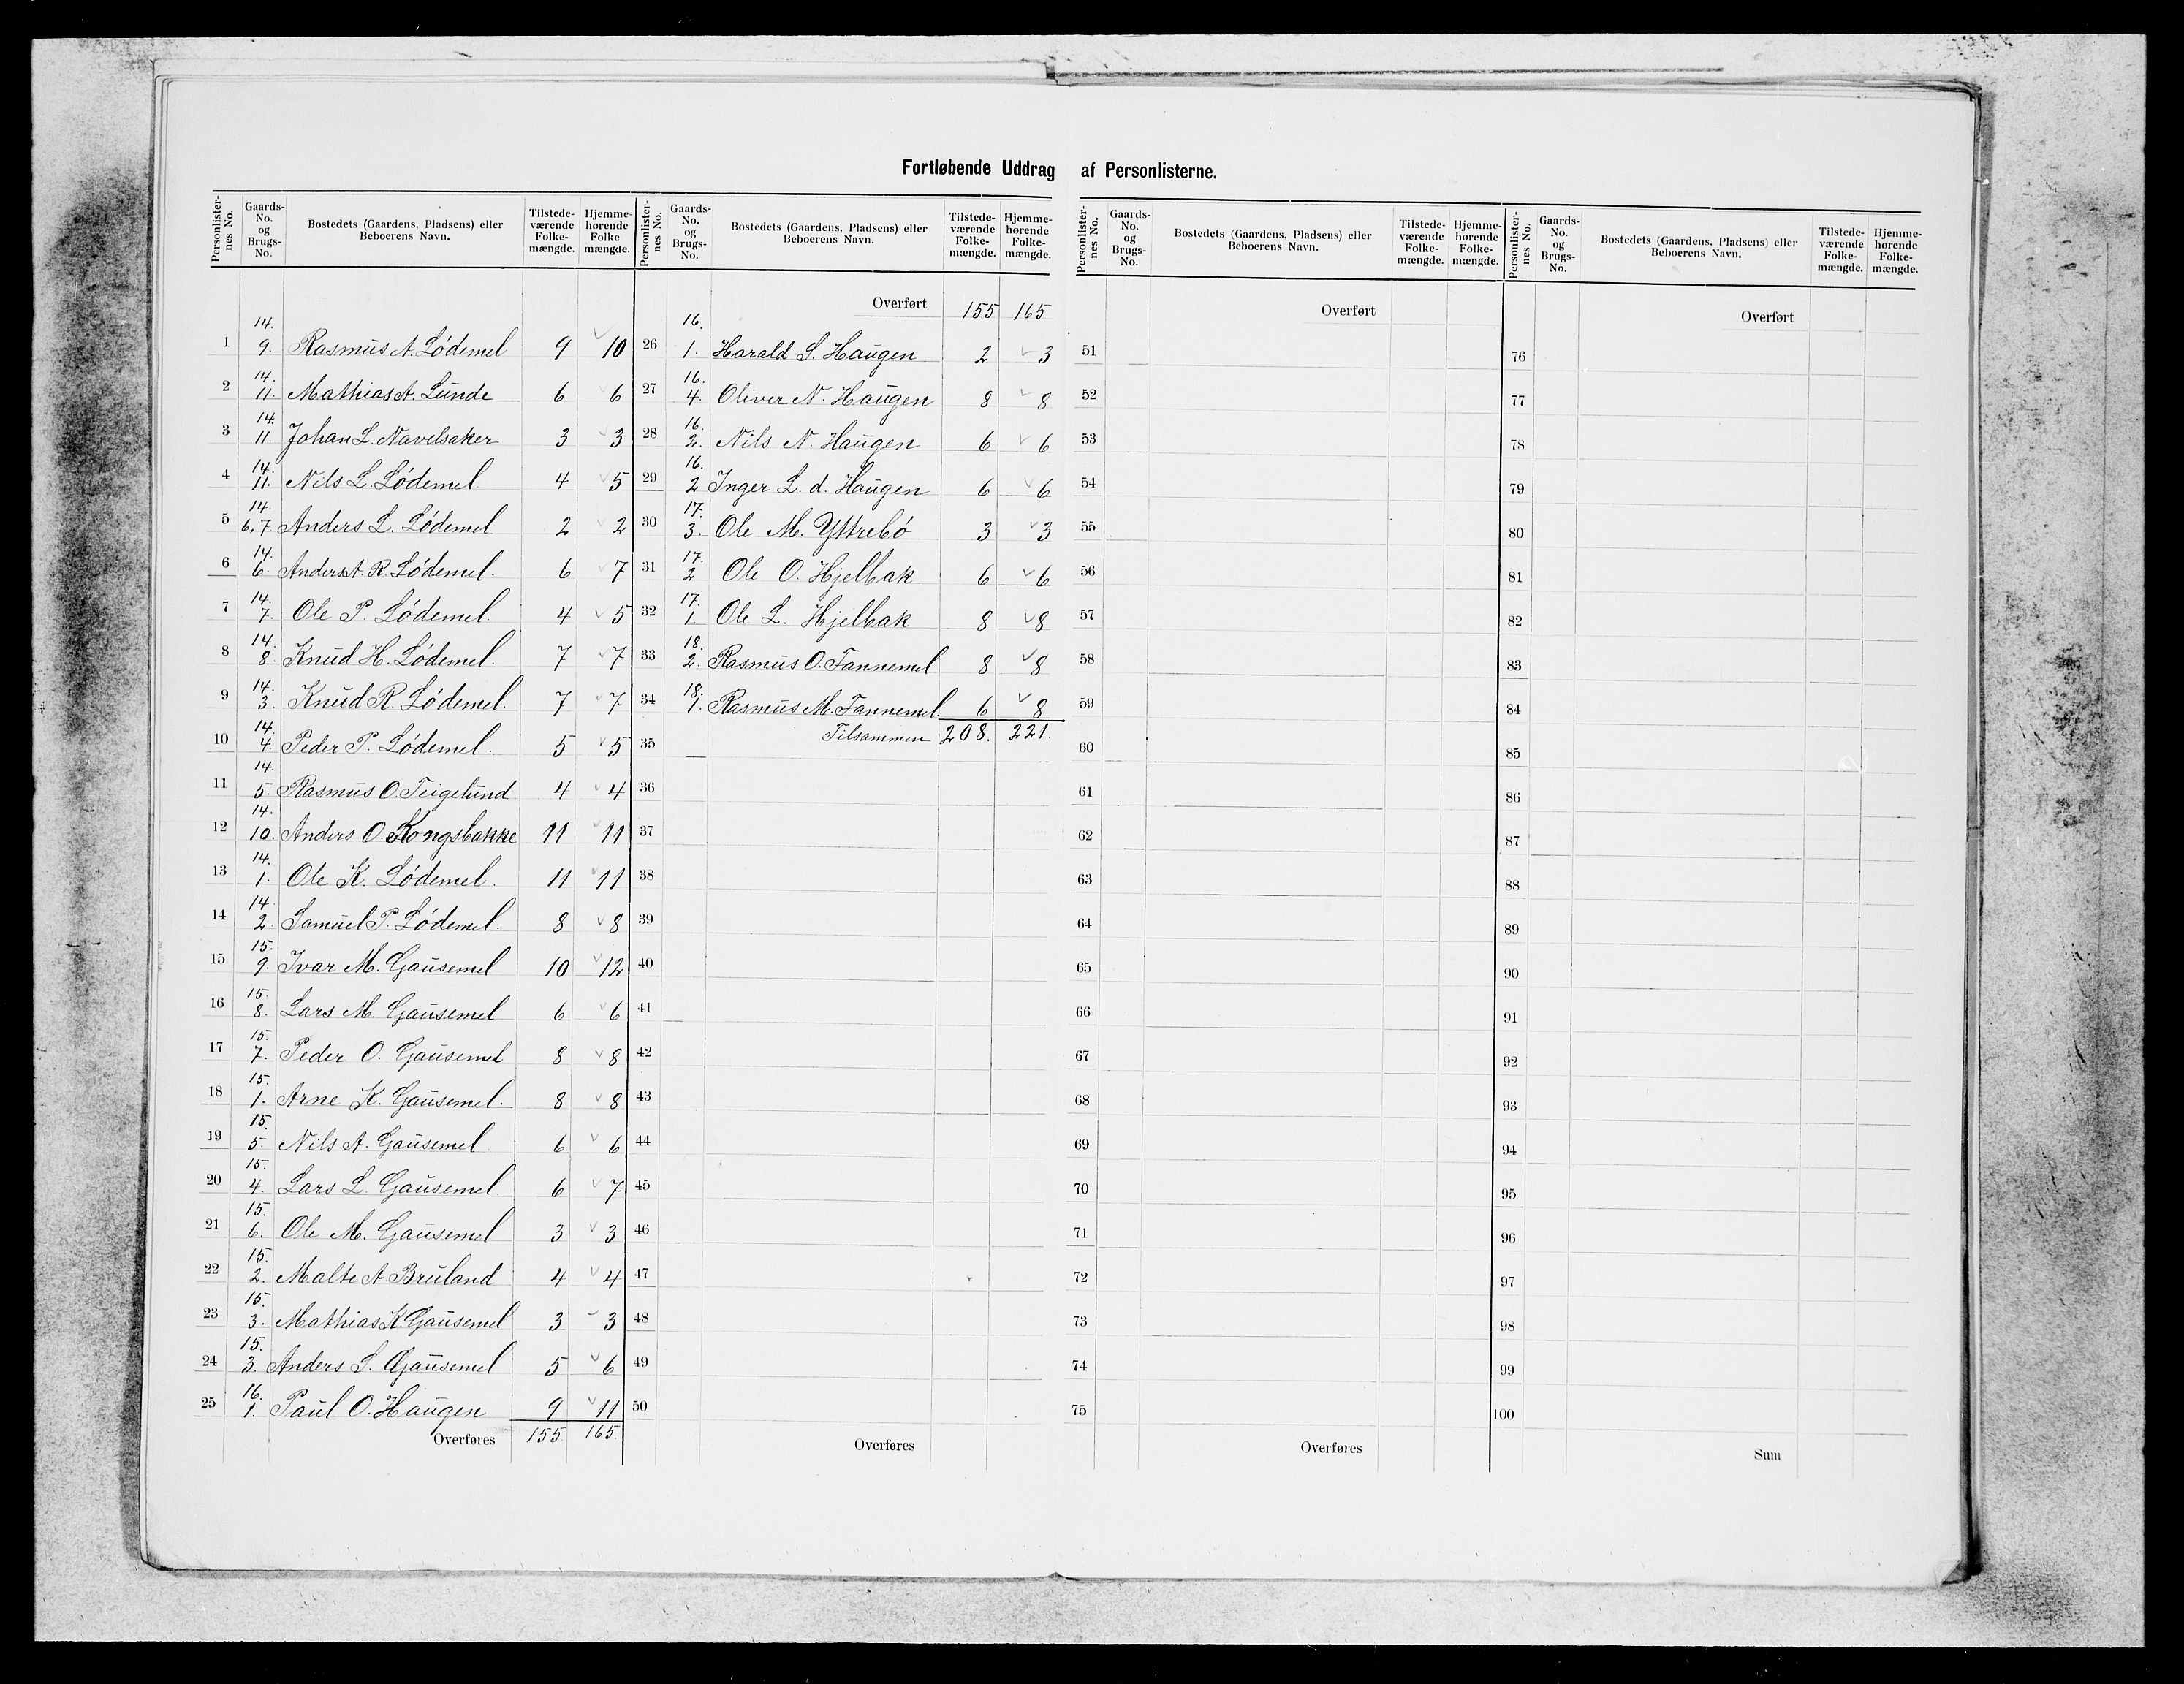 Fortløbende Uddrag af Personlisterne.
Personlister-nes No. | Gaards-No. og Brugs-No. | Bostedets (Gaardens, Pladsens) eller Beboerens Navn. | Tilstede-værende Folke-mængde. | Hjemme-hørende Folke mængde.
1 | 14. 9. | Rasmus A. Lødemel | 9 | 10
2 | 14. 11. | Mathias A. Lunde | 6 | 6
3 | 14. 11. | Johan L. Navelsaker | 3 | 3
4 | 14. 11. | Nils L. Lødemel | 4 | 5
5 | 14 6,7 | Anders L. Lødemel | 2 | 2
6 | 14. 6. | Anders A. R. Lødemel. | 6 | 7
7 | 14. 7. | Ole P. Lødemel. | 4 | 5
8 | 14. 8. | Knud H. Lødemel. | 7 | 7
9 | 14. 3. | Knud R. Lødemel. | 7 | 7
10 | 14. 4. | Peder P. Lødemel. | 5 | 5
11 | 14. 5. | Rasmus O. Teigelund | 4 | 4
12 | 14. 10. | Anders O. Kongsbakke | 11 | 11
13 | 14. 1. | Ole K. Lødemel. | 11 | 11
14 | 14 2. | Samuel P. Lødemel. | 8 | 8
15 | 15. 9. | Ivar M. Gausemel | 10 | 12
16 | 15. 8. | Lars M. Gausemel | 6 | 6
17 | 15. 7. | Peder O. Gausemel | 8 | 8
18 | 15. 1. | Arne K. Gausemel. | 8 | 8
19 | 15. 5. | Nils A. Gausemel | 6 | 6
20 | 15. 4. | Lars L. Gausemel | 6 | 7
21 | 15. 6. | Ole M. Gausemel | 3 | 3
22 | 15. 2. | Malte A Bruland | 4 | 4
23 | 15. 3. | Mathias K. Gausemel | 3 | 3
24 | 15. 3. | Anders S. Gausemel | 5 | 6
25 | 16. 1. | Paul O. Haugen | 9 | 11
Overføres | 155 | 165
Personlister-nes No. | Gaards-No. og Brugs-No. | Bostedets (Gaardens, Pladsens) eller Beboerens Navn. | Tilstede-værende Folke-mængde. | Hjemme-hørende Folke-mængde.
Overført | 155 | 165
26 | 16. 1. | Harald S. Haugen | 2 | 3
27 | 16. 4. | Oliver N. Haugen | 8 | 8
28 | 16. 2. | Nils N. Haugen | 6 | 6
29 | 16. 2 | Inger L. d. Haugen | 6 | 6
30 | 17. 3. | Ole M. Yttrebø | 3 | 3
31 | 17. 2 | Ole O. Hjelbak | 6 | 6
32 | 17. 1. | Ole L. Hjelbak | 8 | 8
33 | 18. 2. | Rasmus O. Tannemel | 8 | 8
34 | 18. 1. | Rasmus M. Tannemel. | 6 | 8
35 | Tilsammen | 208. | 221.
36
37
38
39
40
41
42
43
44
45
46
47
48
49
50
Overføres
Personlister-nes No. | Gaards-No. og Brugs-No. | Bostedets (Gaardens, Pladsens) eller Beboerens Navn. | Tilstede-værende Folke-mængde. | Hjemme-hørende Folke-mængde.
Overført
51
52
53
54
55
56
57
58
59
60
61
62
63
64
65
66
67
68
69
70
71
72
73
74
75
Overføres
Personlister-nes No. | Gaards-No. og Brugs-No. | Bostedets (Gaardens, Pladsens) eller Beboerens Navn. | Tilstede-værende Folke-mængde. | Hjemme-hørende Folke-mængde.
Overført
76
77
78
79
80
81
82
83
84
85
86
87
88
89
90
91
92
93
94
95
96
97
98
99
100
Sum